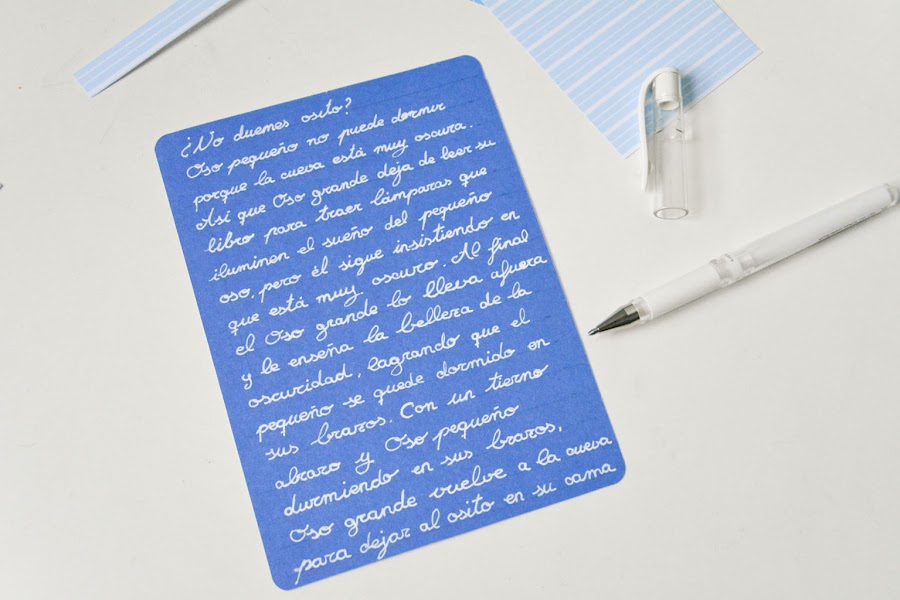 ¿No duemes osito?
Oso pequeño no puede dormir
porque la cueva está muy oscura.
Así que Oso grande deja de leer su
libro para traer lámparas que
iluminen el sueño del pequeño
oso, pero él sigue insistiendo en
que está muy oscuro. Al final
el Oso grande lo lleva afuera
y le enseña la belleza de la
oscuridad, lagrando que el
pequeño se quede dormido en
sus brazos. Con un tierno
abrazo y Oso pequeño
durmiendo en sus brazos,
Oso grande vuelve a la cueva
para dejar al osito en su cama